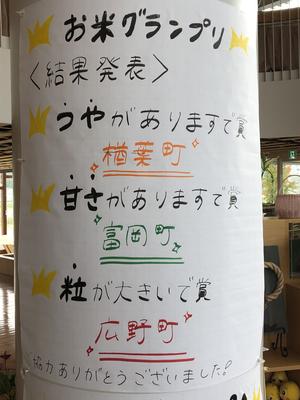 お米グランプリ
〈結果発表〉
つやがありますで賞
楢葉町
甘さがありますで賞
富岡町
粒が大きいで賞
広野町
協力ありがとうございました!